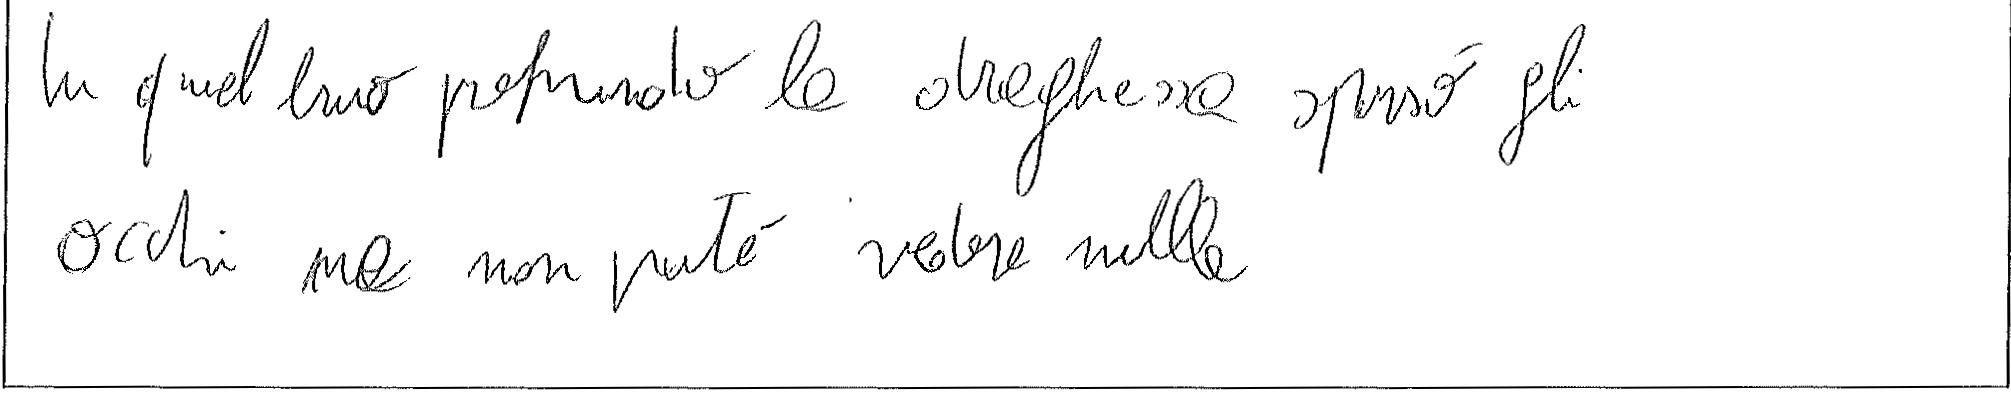 In quel buio profondo la draghessa spersó gli
occhi ma non poté vedere nulla